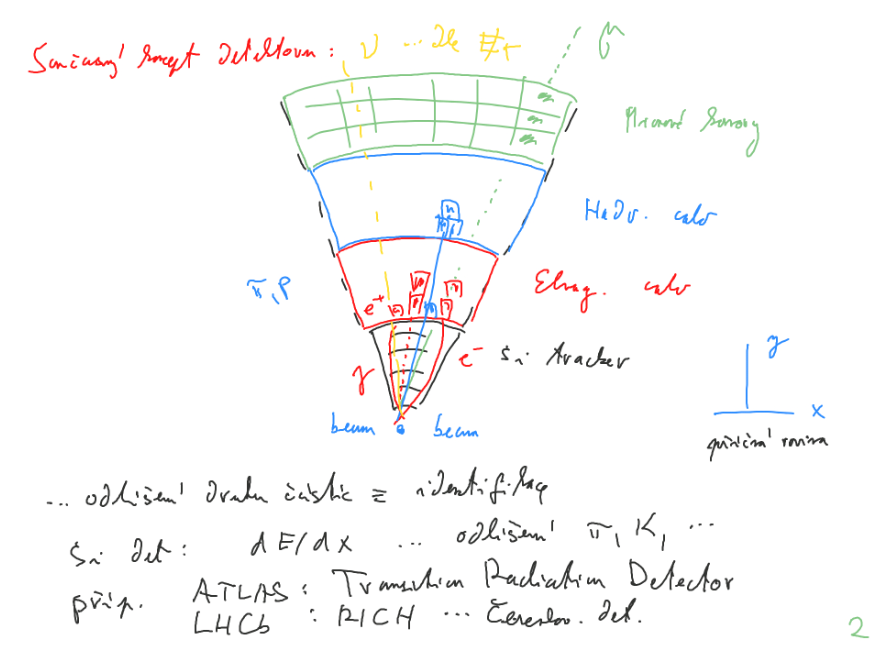 Současný koncept detektoru: ν ... dle E̸_T μ
Mionové komory
Hadr. calo
π, p
Elmag. calo
e⁺
γ e⁻ Si tracker
y
x
beam beam
příčná rovina
... odlišení druhu částic = identifikace
Si det: dE/dx ... odlišení π, K, ...
příp. ATLAS: Transition Radiation Detector
LHCb : RICH ... Čerenkov. det.
2